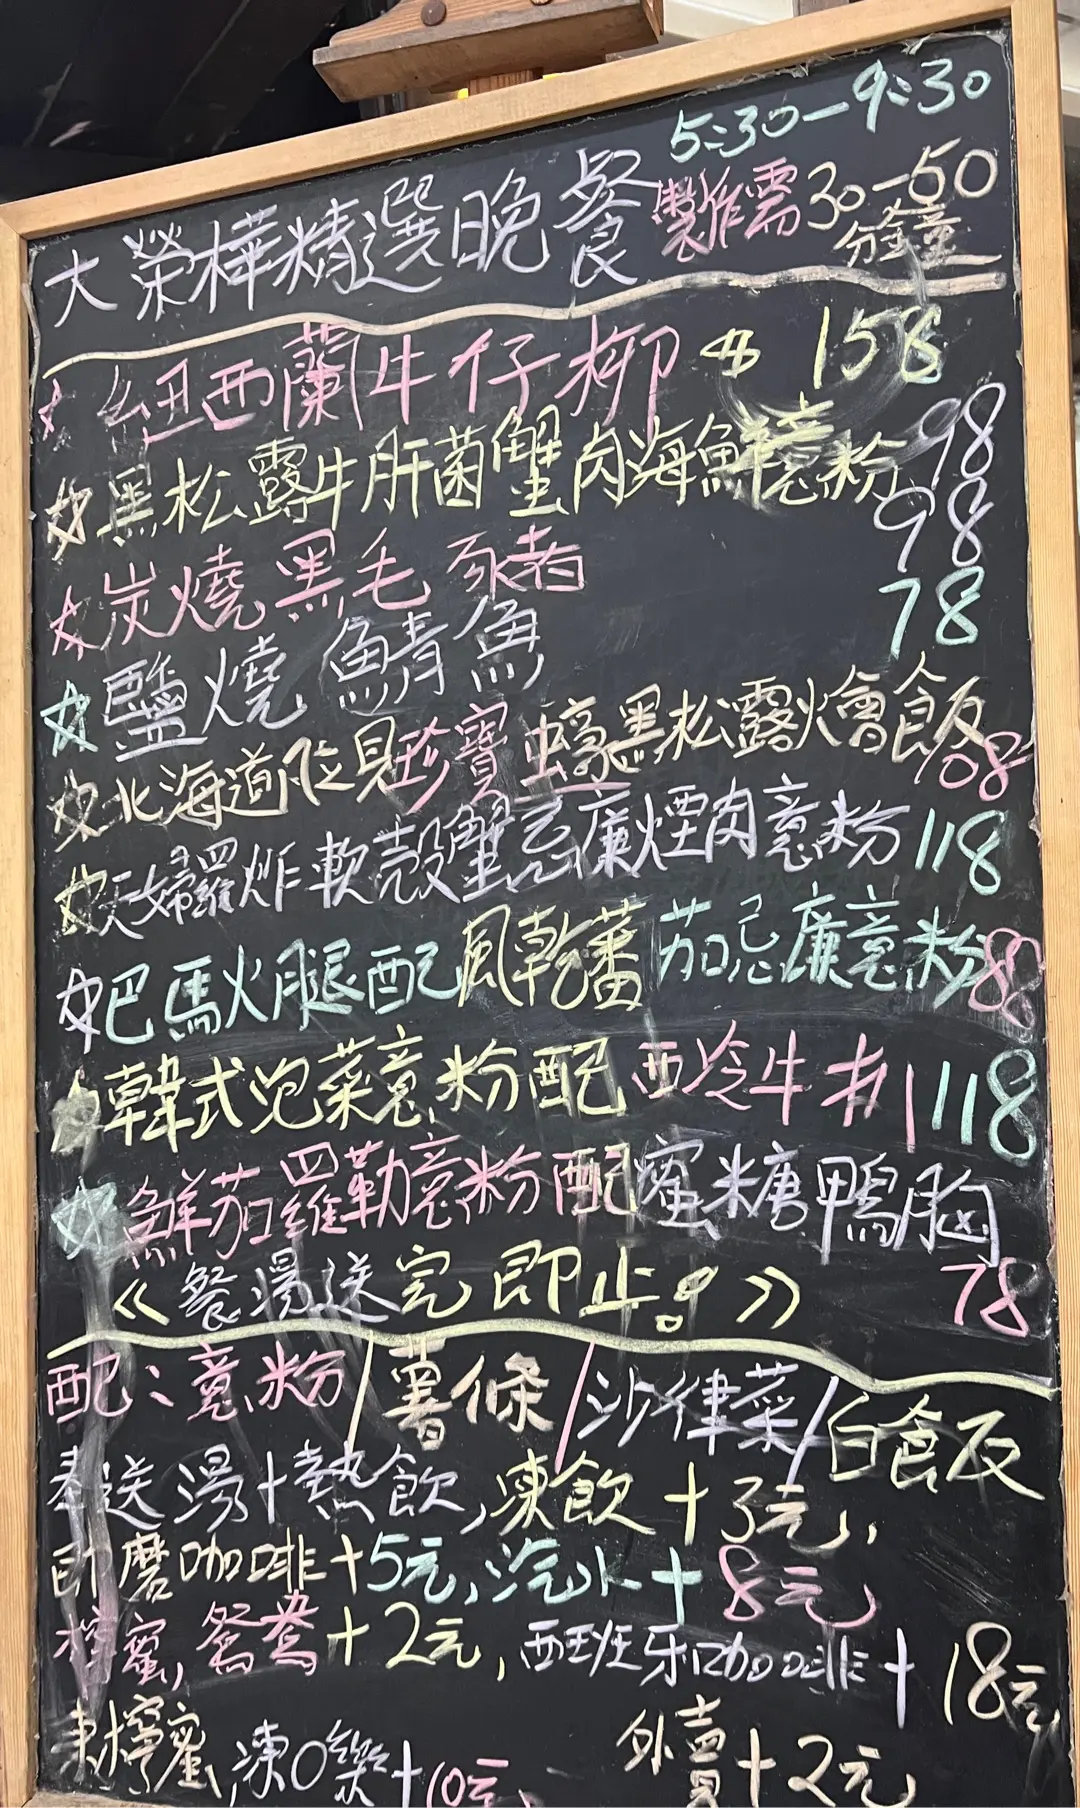 5:30-9:30
大榮樺精選晚餐 製作需30-50分鐘
紐西蘭牛仔柳 $158
黑松露牛肝菌蟹肉海鮮意粉 98
炭燒黑毛豬 98
鹽燒鯖魚 78
北海道帶子珍寶蠔黑松露燴飯 108
天婦羅炸軟殼蟹忌廉煙肉意粉 118
巴馬火腿配風乾蕃茄忌廉意粉 88
韓式泡菜意粉配西冷牛扒 118
鮮茄羅勒意粉配蜜糖鴨胸 78
《餐湯送完即止!》
配:意粉/薯條/沙律菜/白飯
奉送湯+熱飲,凍飲+3元,
即磨咖啡+5元,汽水+8元,
檸蜜,鴛鴦+2元,西班牙咖啡+18元
凍檸蜜,凍O樂+10元, 外賣+2元,